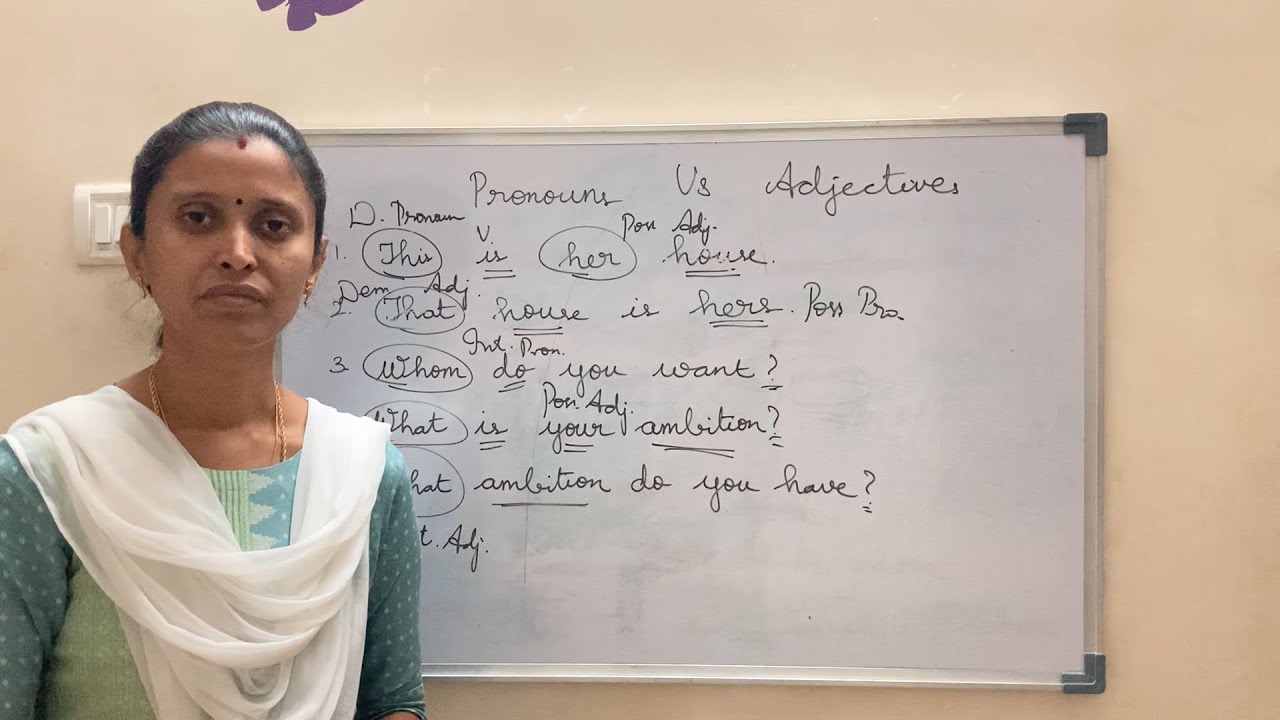 Pronouns Vs Adjectives
D. Pronoun V. Poss Adj.
1. This is her house.
Dem Adj.
2. That house is hers. Poss Pro.
Int. Pron.
3. Whom do you want?
Poss Adj.
What is your ambition?
hat ambition do you have?
t. Adj.